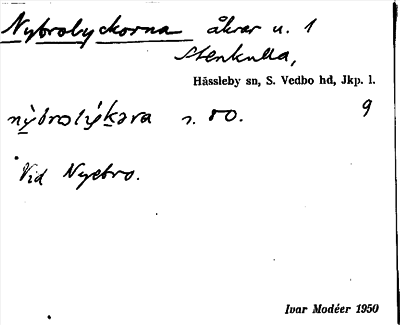 Nybrolyckorna åkrar u. 1
Stenkulla,
Hässleby sn, S. Vedbo hd, Jkp. l.
nỳbrolýkəra s. 80. 9
Vid Nyebro.
Ivar Modéer 1950